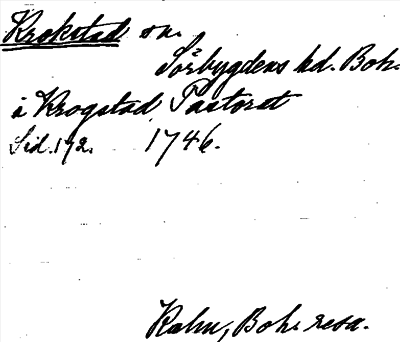 Krokstad sn.
Sörbygdens hd. Boh.
i Krogstad Pastorat
Sid. 172. 1746.
Kalm, Boh. resa.